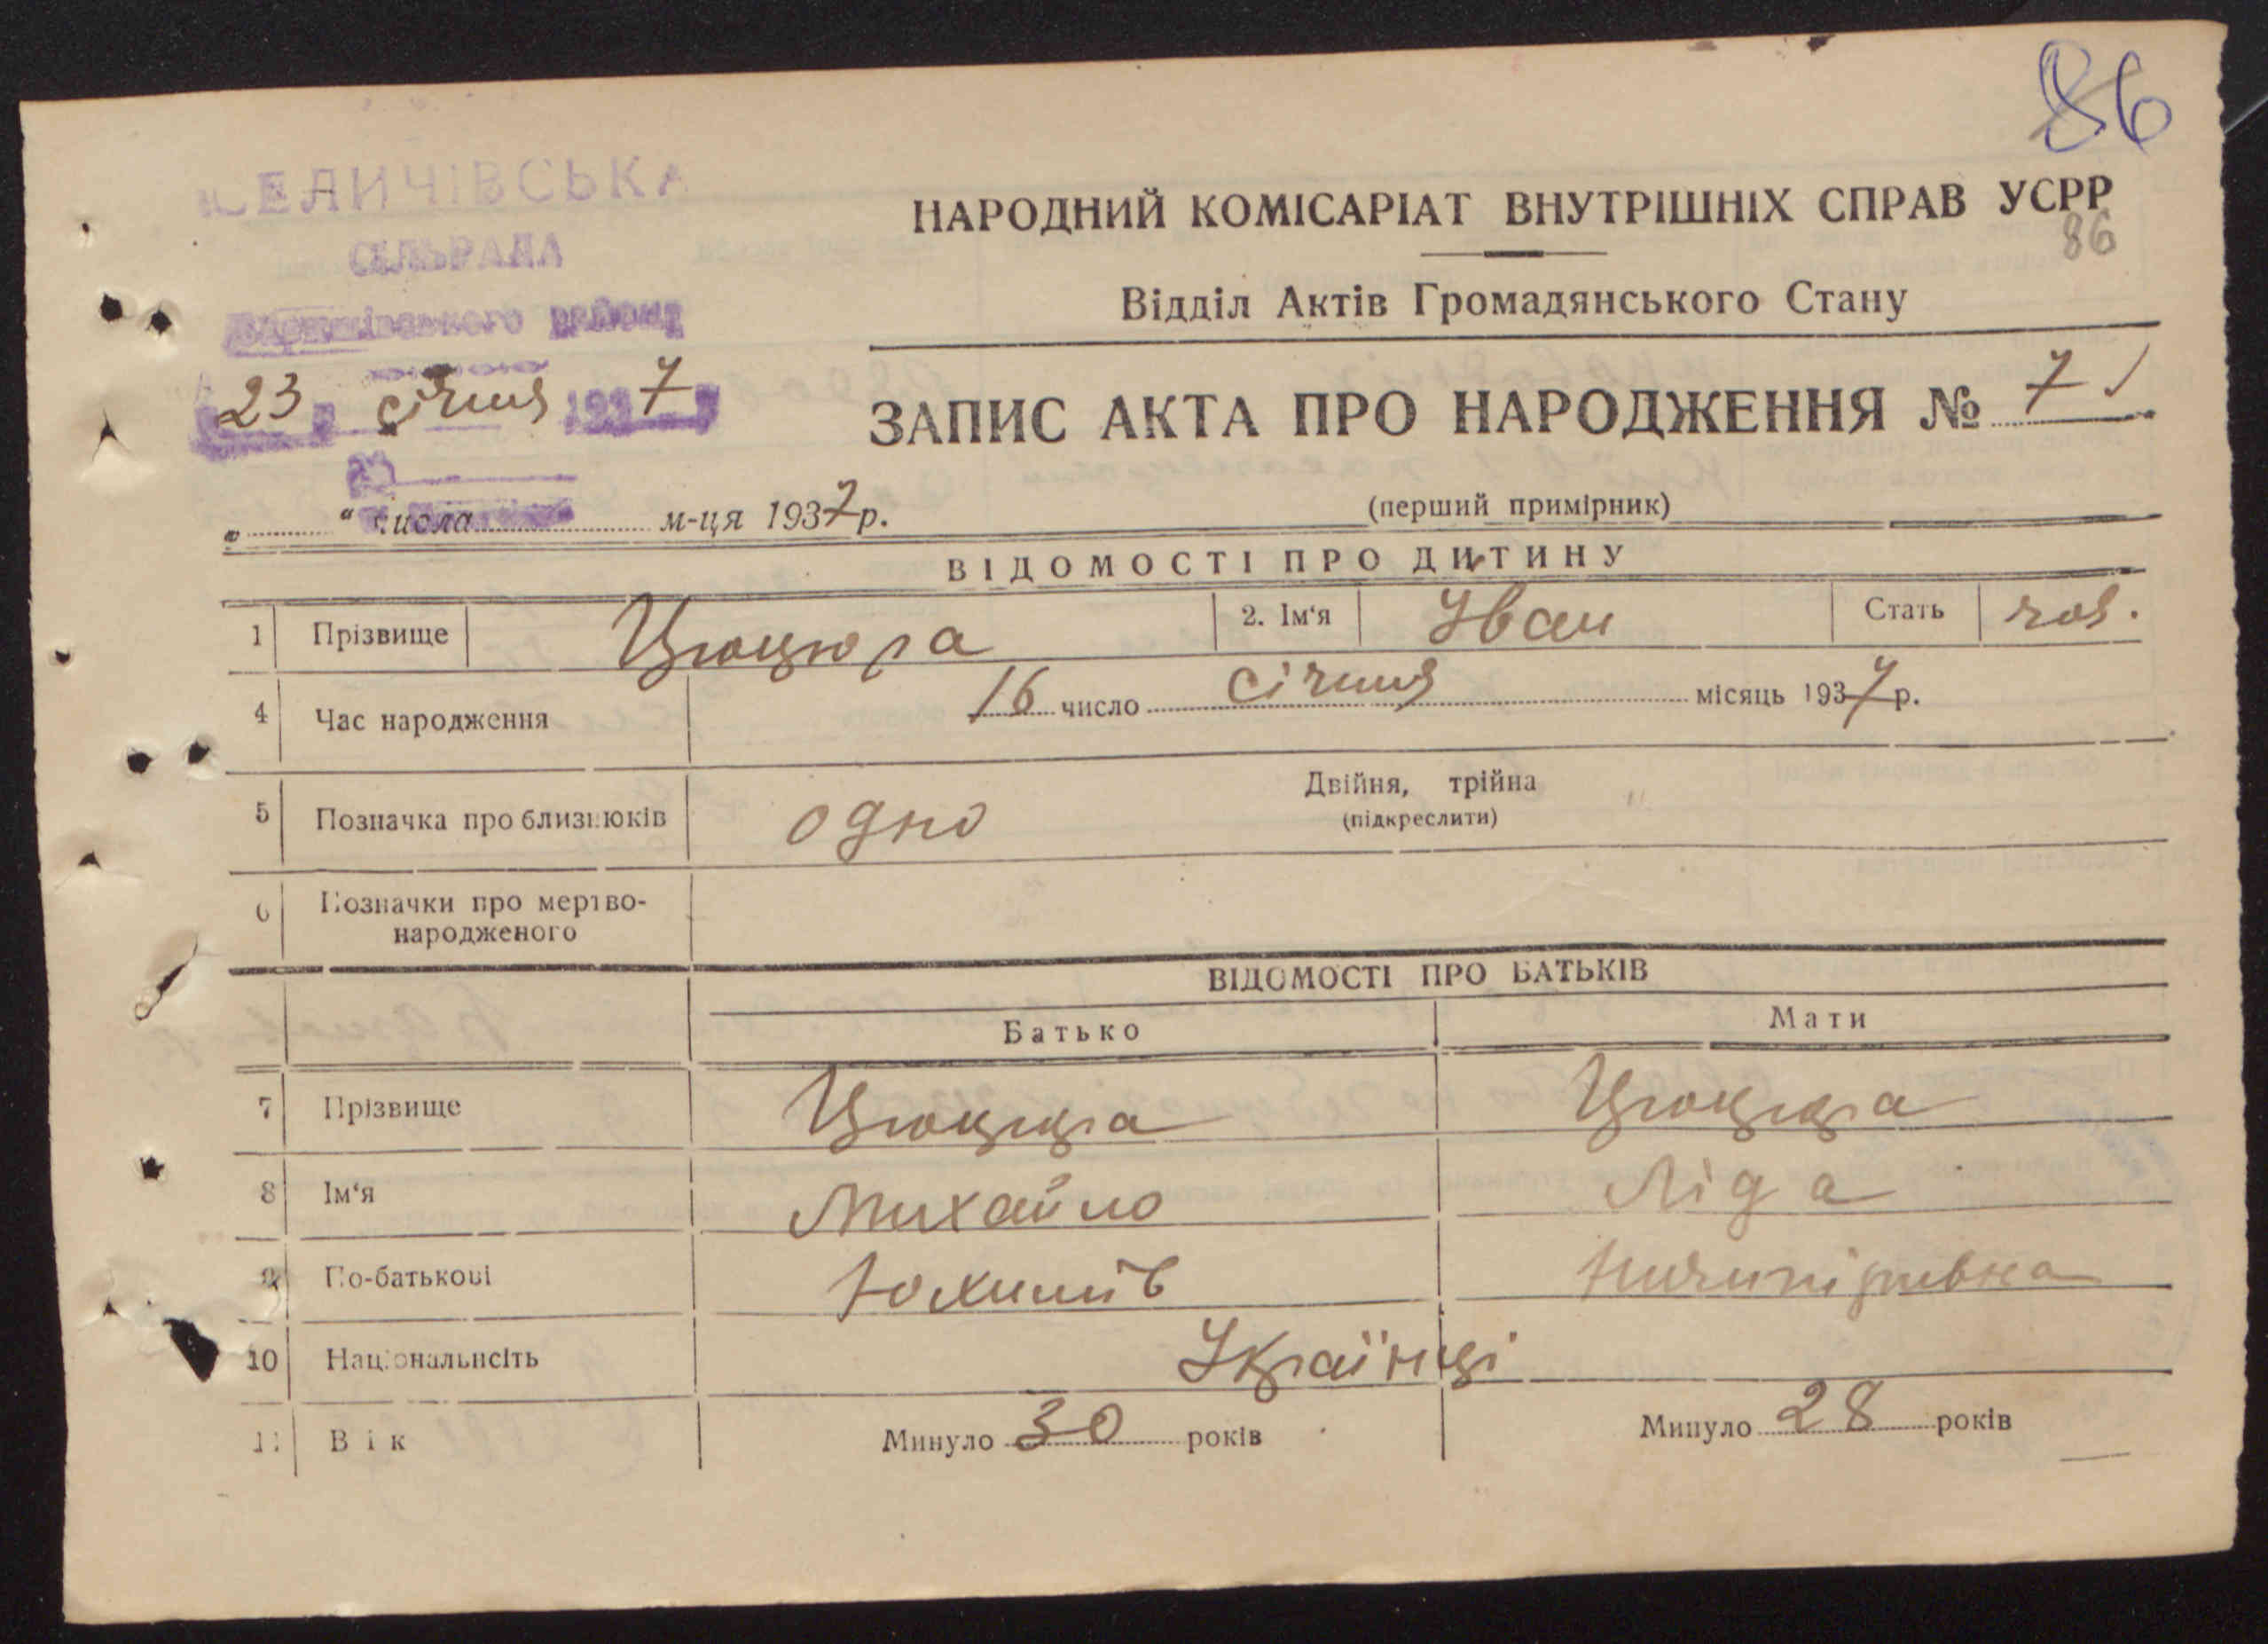 86
НАРОДНИЙ КОМІСАРІАТ ВНУТРІШНІХ СПРАВ УСРР
86
СІЛЬРАДА
району
Відділ Актів Громадянського Стану
23 січня 1937
ЗАПИС АКТА ПРО НАРОДЖЕННЯ № 7
(перший примірник)
„ “ числа м-ця 1937 р.
ВІДОМОСТІ ПРО ДИТИНУ
1 Прізвище Цюцюра 2. Ім‘я Іван Стать чол.
4 Час народження 16 число січня місяць 1937 р.
5 Позначка про близнюків одно Двійня, трійна
(підкреслити)
6 Позначки про мертво-
народженого
ВІДОМОСТІ ПРО БАТЬКІВ
Батько Мати
7 Прізвище Цюцюра Цюцюра
8 Ім‘я Михайло Ліда
9 По-батькові Юхимів Ничипірівна
10 Національнсіть Українці
11 Вік Минуло 30 років Минуло 28 років